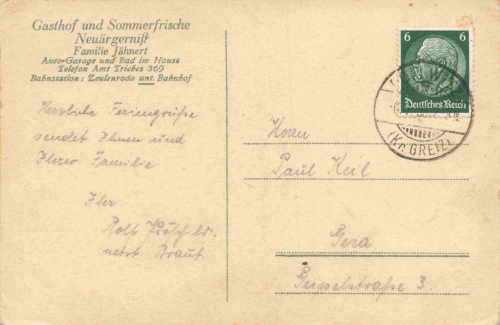 Gasthof und Sommerfrische
Neuärgerniß
Familie Jähnert
Auto-Garage und Bad im Hause
Telefon Amt Triebes 369
Bahnstation: Zeulenroda unt. Bahnhof
Herzliche Feriengrüße
sendet Ihnen und
Ihrer Familie
Ihr
Rolf
nebst Braut
Herrn
Paul Keil
Gera
3.
6 6
Deutsches Reich
(Kr. GREIZ)